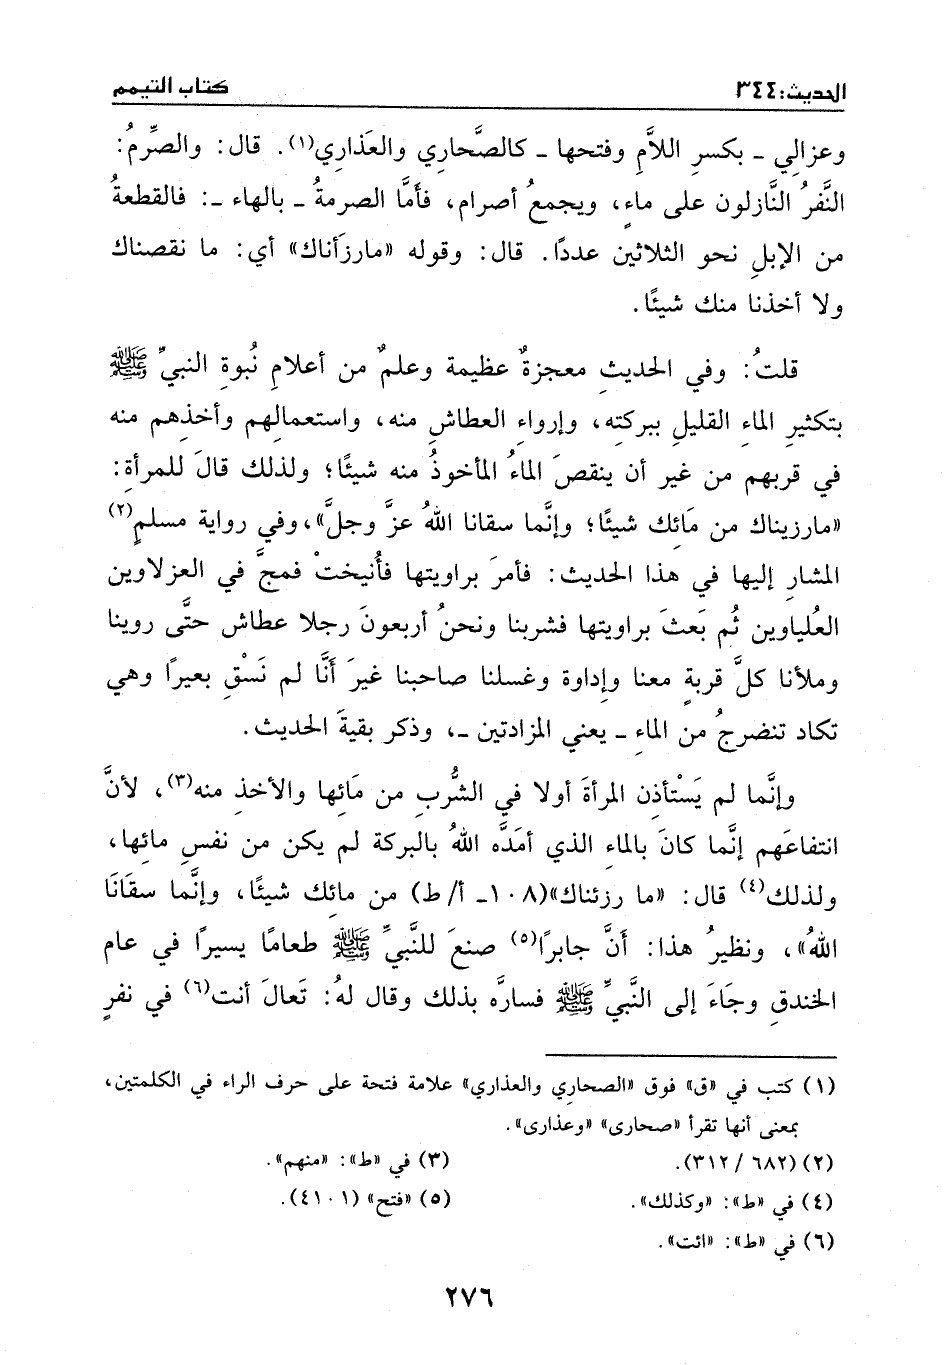 الحديث: ٣٤٤
كتاب التيمم
وعزالي ـ بكسرِ اللاَّمِ وفتحها ـ كالصَّحارِي والعَذارِي(١). قال: والصِّرمُ:
النَّفرُ النَّازلون على ماءٍ، ويجمعُ أصرام، فأمَّا الصرمةُ ـ بالهاء ـ: فالقطعةُ
من الإبلِ نحو الثلاثين عددًا. قال: وقوله «مارزَأناك» أي: ما نقصناك
ولا أخذنا منك شيئًا.
قلتُ: وفي الحديثِ معجزةٌ عظيمة وعلمٌ من أعلامِ نُبوة النبيِّ ﷺ
بتكثيرِ الماءِ القليلِ ببركتِه، وإرواءِ العطاشِ منه، واستعمالِهم وأخذِهم منه
في قربهم من غير أن ينقصَ الماءُ المأخوذُ منه شيئًا؛ ولذلك قالَ للمرأةِ:
«مارزيناك من مَائِك شيئًا؛ وإنَّما سقانا اللهُ عزَّ وجلَّ»، وفي رواية مسلمٍ(٢)
المشارِ إليها في هذا الحديث: فأمرَ براويتها فأُنيختْ فمجَّ في العزلاوين
العُلياوين ثُم بَعثَ براويتِها فشربنا ونحنُ أربعونَ رجلا عطاش حتَّى روينا
وملأنا كلَّ قربةٍ معنا وإداوة وغسلنا صاحبنا غيرَ أنَّا لم نَسْقِ بعيرًا وهي
تكاد تنضرجُ من الماءِ ـ يعني المزادتين ـ، وذكر بقيةَ الحديث.
وإنَّما لم يَسْتأذِن المرأةَ أولا في الشُّربِ من مَائِها والأخذِ منه(٣)، لأنَّ
انتفاعَهم إنَّما كانَ بالماءِ الذي أمَدَّه اللهُ بالبركة لم يكن من نفسِ مائِها،
ولذلك(٤) قال: «ما رزئناك»(١٠٨ـ أ/ط) من مائِك شيئًا، وإنَّما سقَانَا
اللهُ»، ونظيرُ هذا: أنَّ جابرًا(٥) صنعَ للنَّبيِّ ﷺ طعامًا يسيرًا في عام
الخندقِ وجَاءَ إلى النَّبيِّ ﷺ فسارَّه بذلك وقال لهُ: تَعالَ أنت(٦) في نفرٍ
(١) كتب في «ق» فوق «الصحارِي والعذارِي» علامة فتحة على حرف الراء في الكلمتين،
بمعنى أنها تقرأ «صحارى» «وعذارى».
(٢) (٦٨٢ / ٣١٢).
(٣) في «ط»: «منهم».
(٤) في «ط»: «وكذلك».
(٥) «فتح» (٤١٠١).
(٦) في «ط»: «ائت».
٢٧٦